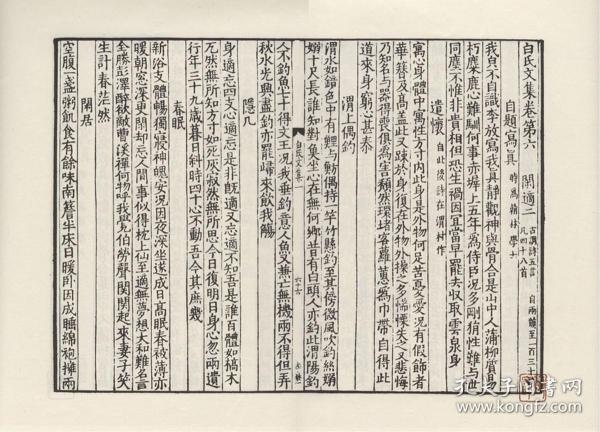 白氏文集卷第六　閑適二　古調詩五言　凡四十八首　自兩韻至一百三十
自題寫真　時為翰林學士
我㒵不自識李放寫我真靜觀神與骨合是山中人蒲柳質易
朽麋鹿心難馴何事赤墀上五年為侍臣況多剛狷性難與世
同塵不惟非貴相但恐生禍因宜當早罷去收取雲泉身
遣懷　自此後詩在渭村作
寓心身體中寓性方寸內此身是外物何足苦憂愛況有假飾者
華簪及高蓋此又踈於身復在外物外操之多惴慄失之又悲悔
乃知名與器得喪俱為害頹然環堵客蘿蕙為巾帶自得此
道來身窮心甚泰
渭上偶釣
渭水如鏡色中有鯉與魴偶持一竿竹懸釣至其傍微風吹釣絲嫋
嫋十尺長誰知對魚坐心在無何鄉昔有白頭人亦釣此渭陽釣
人不釣魚七十得文王況我垂釣意人魚又兼亡無機兩不得但弄
白氏文集
秋水光興盡釣亦罷歸來飲我觴
隱几
身適忘四支心適忘是非既適又忘適不知吾是誰百體如槁木
兀然無所知方寸如死灰寂然無所思今日復明日身心忽兩遺
行年三十九歲暮日斜時四十心不動吾今其庶幾
春眠
新浴支體暢獨寢神魄安況因夜深坐遂成日高眠春被薄亦
暖朝窓深更閑却忘人間事似得枕上仙至適無夢想大和難名言
全勝彭澤醉欲敵曹溪禪何物呼我覺伯勞聲關關起來妻子笑
生計春茫然
閑居
空腹一盞粥飢食有餘味南簷半床日暖卧因成睡綿袍擁兩
孔夫子旧书网
www.kongfz.com